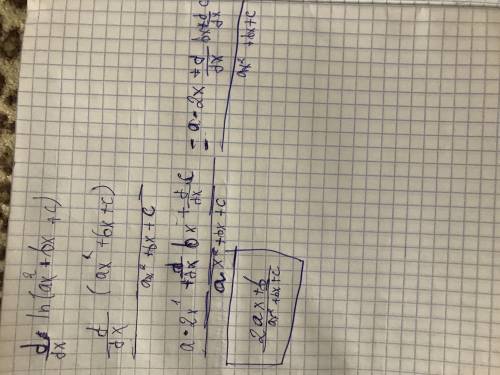 d/dx ln(ax² + bx + c)
d/dx (ax² + bx + c) / ax² + bx + c
a · 2x¹ + d/dx bx + d/dx c / ax² + bx + c = a · 2x + d/dx bx + d/dx c / ax² + bx + c
2ax + b / ax² + bx + c